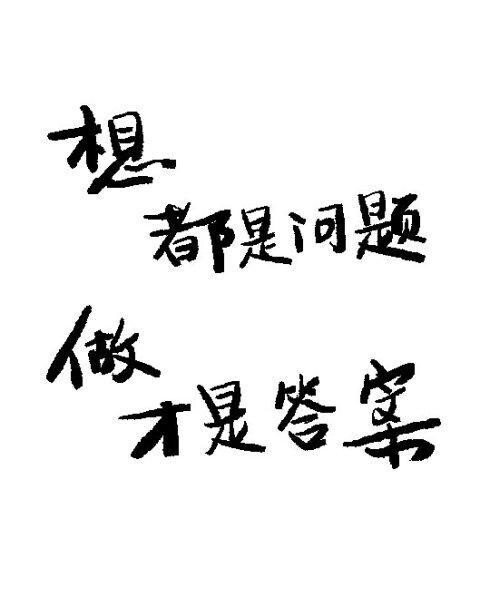 想
都是问题
做
才是答案